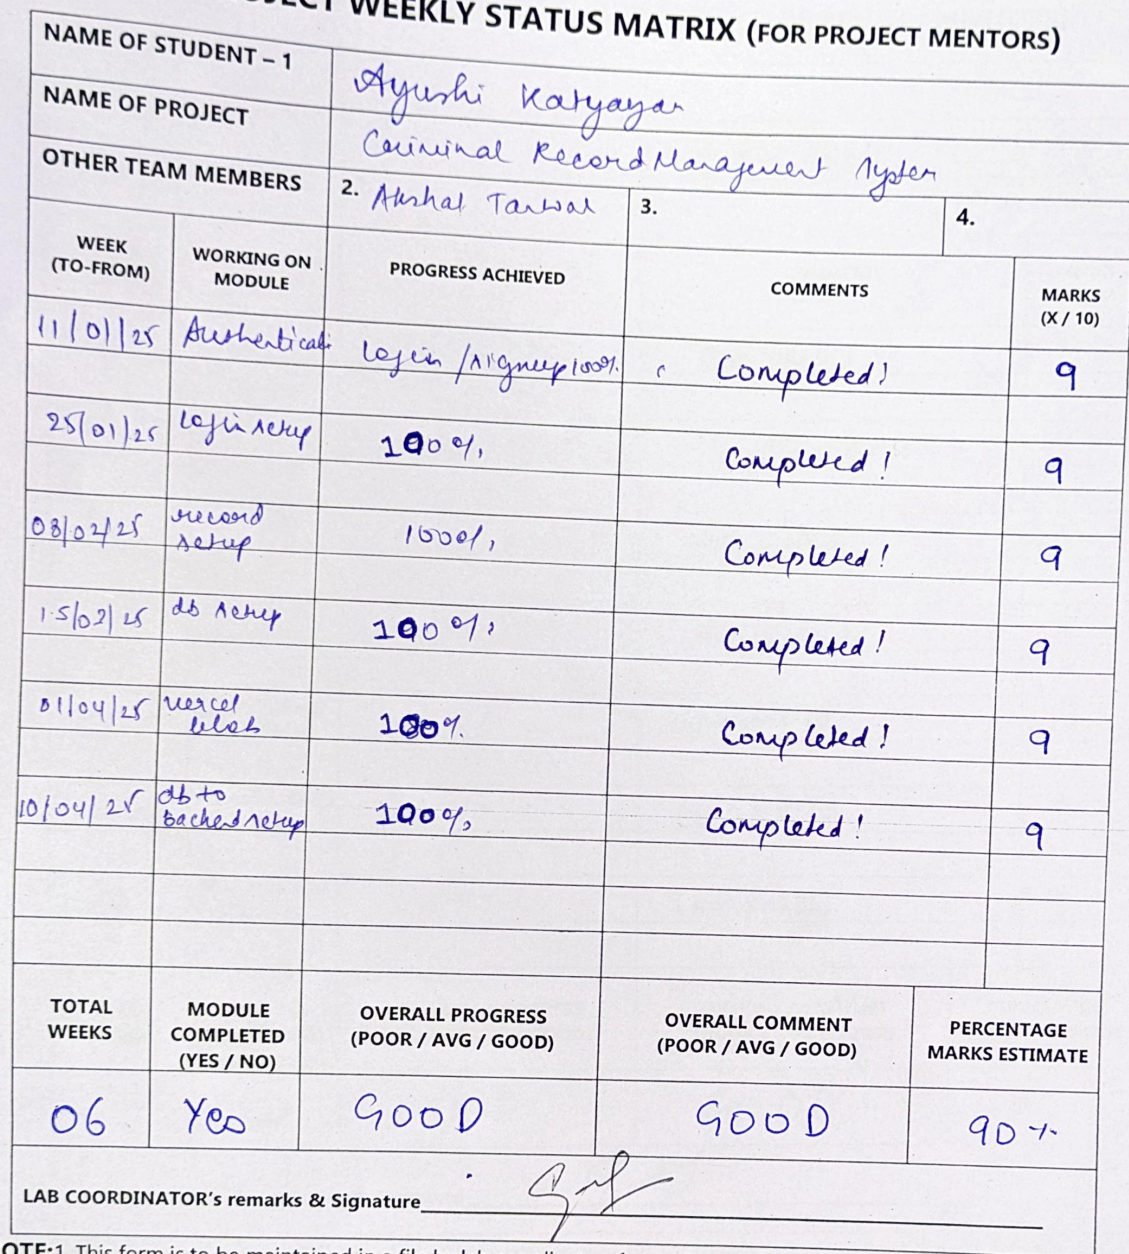 WEEKLY STATUS MATRIX (FOR PROJECT MENTORS)
NAME OF STUDENT – 1 Ayushi Katyayan
NAME OF PROJECT Criminal Record Management System
OTHER TEAM MEMBERS 2. Akshat Tanwar 3. 4.
WEEK (TO-FROM) WORKING ON MODULE PROGRESS ACHIEVED COMMENTS MARKS (X / 10)
11/01/25 Authenticati login/signup 100%. Completed! 9
25/01/25 login setup 100%, Completed! 9
08/02/25 record setup 100%, Completed! 9
15/02/25 db setup 100%, Completed! 9
01/04/25 vercel blob 100%. Completed! 9
10/04/25 db to backend setup 100%, Completed! 9
TOTAL WEEKS MODULE COMPLETED (YES / NO) OVERALL PROGRESS (POOR / AVG / GOOD) OVERALL COMMENT (POOR / AVG / GOOD) PERCENTAGE MARKS ESTIMATE
06 Yes GOOD GOOD 90%
LAB COORDINATOR's remarks & Signature